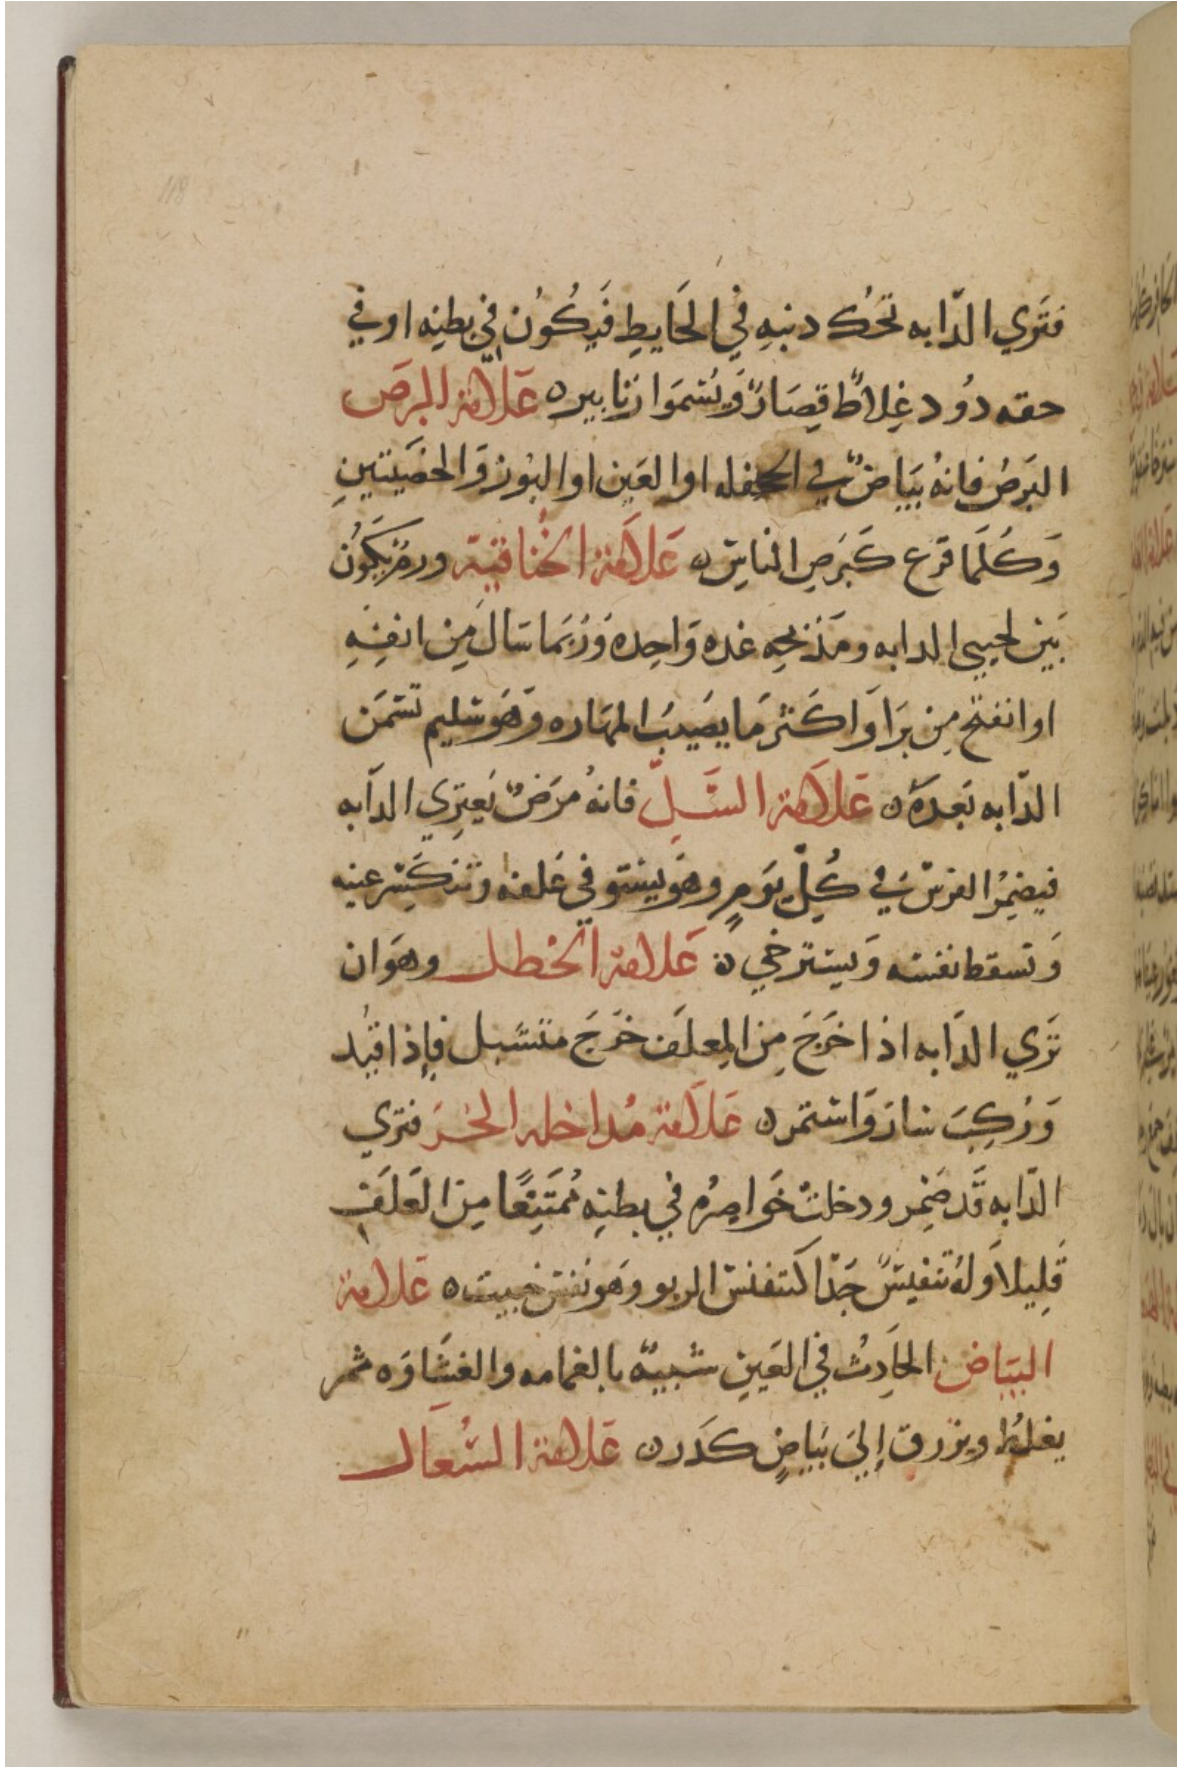 فتَري الدّابه تحُك دنبهِ في الحَايطِ فَيكُون في بطنِه اوفي
حقه دُود غِلاظٌ قِصَارٌ وَيسُموَا زنابيره عَلامة البرَص
البَرصُ فانهُ بَيَاضٌ في الجحفله اوالعَين اوالبُوز وَالخصَيتينِ
وَكُلّمَا قرَع كَبَرَصِ الناسِ ه عَلامَة الخُناقيّة وَرمٌ يكُونُ
بَين لحيي الدابه ومَذبحِه غده وَاحِده وَرُبَما سَال مِن انفِهِ
او انفتح مِن برَا وَاكثرُ مَا يصَيبُ المهَاره وَهَو سَليم تسْمَن
الدّابه بَعدهَ ه عَلامة السِّلِّ فانهُ مرَضٌ يَعتِري الدّابه
فيضمِرُ الفرسَ في كُلِّ يَومٍ وهوَ يستوفي عَلفه وَتنكسِرعينه
وَتسقط نفسه وَيسترخي ه عَلامة الخطل وهوَ ان
تَري الدّابه اذا خَرجَ مِن المِعلَف خَرجَ متسَبل فإذا قيُد
وَرُكِبَ سَارَ وَاستمر ه عَلامة مُداخله الخُدر فترَي
الدّابه قَد ضَمِر ودخلتْ خَواصِرُه في بطنِه مُمتَنِعًا مِن العَلَف
قَلِيلا وَلهُ تنفيسٌ جَدّا كتفنس الربو وهَو نفسَ خبيث ه عَلامة
البيَاض الحَادِث في العَينِ شبيهٌ بالغمامه والغشَاوَه ثمر
يغلظُ ويزرق إلىَ بَياضٍ كدَر ه عَلامة السُّعَال